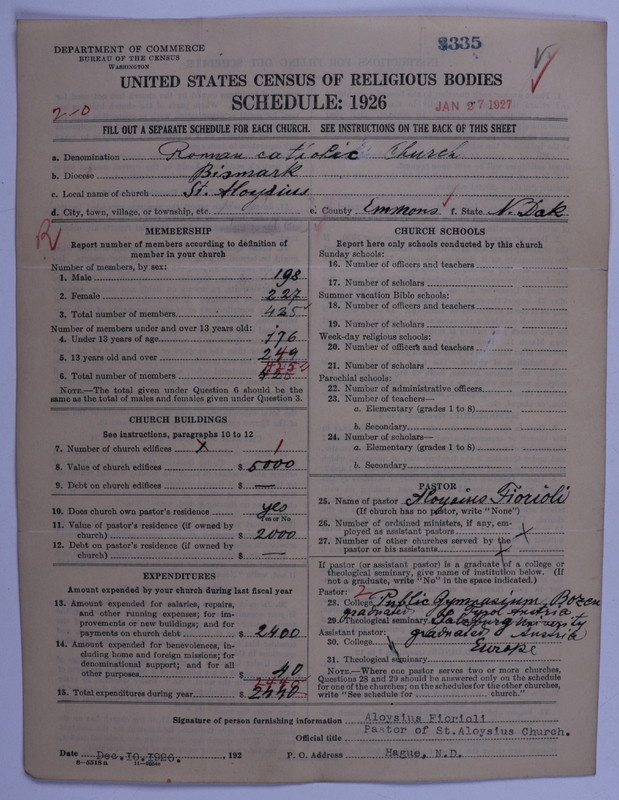 DEPARTMENT OF COMMERCE
BUREAU OF THE CENSUS
WASHINGTON
3335
UNITED STATES CENSUS OF RELIGIOUS BODIES
SCHEDULE: 1926
2-0
JAN 27 1927
FILL OUT A SEPARATE SCHEDULE FOR EACH CHURCH. SEE INSTRUCTIONS ON THE BACK OF THIS SHEET
a. Denomination Roman catholic Church
b. Diocese Bismark
c. Local name of church St. Aloysius
d. City, town, village, or township, etc. e. County Emmons f. State N. Dak
R
MEMBERSHIP
Report number of members according to definition of
member in your church
Number of members, by sex:
1. Male 198
2. Female 227
3. Total number of members 425
Number of members under and over 13 years old:
4. Under 13 years of age 176
5. 13 years old and over 249
425
6. Total number of members 425
NOTE.—The total given under Question 6 should be
same as the total of males and females given under Question 3.
CHURCH BUILDINGS
See instructions, paragraphs 10 to 12
7. Number of church edifices X 1
8. Value of church edifices $ 5000
9. Debt on church edifices $ —
10. Does church own pastor's residence yes
Yes or No
11. Value of pastor's residence (if owned by
church) $ 2000
12. Debt on pastor's residence (if owned by
church) $ —
EXPENDITURES
Amount expended by your church during last fiscal year
13. Amount expended for salaries, repairs,
and other running expenses; for im-
provements or new buildings; and for
payments on church debt $ 2400
14. Amount expended for benevolences, in-
cluding home and foreign missions; for
denominational support; and for all
other purposes $ 40
2440
15. Total expenditures during year $ 2440
CHURCH SCHOOLS
Report here only schools conducted by this church
Sunday schools:
16. Number of officers and teachers
17. Number of scholars
Summer vacation Bible schools:
18. Number of officers and teachers
19. Number of scholars
Week-day religious schools:
20. Number of officers and teachers
21. Number of scholars
Parochial schools:
22. Number of administrative officers
23. Number of teachers—
a. Elementary (grades 1 to 8)
b. Secondary
24. Number of scholars—
a. Elementary (grades 1 to 8)
b. Secondary
PASTOR
25. Name of pastor Aloysius Fiorioli
(If church has no pastor, write "None")
26. Number of ordained ministers, if any, em-
ployed as assistant pastors X
27. Number of other churches served by the
pastor or his assistants X
If pastor (or assistant pastor) is a graduate of a college or
theological seminary, give name of institution below. (If
not a graduate, write "No" in the space indicated.)
Pastor: 2
28. College Public Gymnasium, Bozen
graduated Tyrol Austria
29. Theological seminary Salzburg University
Assistant pastor: graduated Austria
30. College Europe
31. Theological seminary
NOTE.—Where one pastor serves two or more churches,
Questions 28 and 29 should be answered only on the schedule
for one of the churches; on the schedules for the other churches,
write "See schedule for church."
Signature of person furnishing information Aloysius Fiorioli
Official title Pastor of St.Aloysius Church.
Date Dec.10.1926. , 192 P. O. Address Hague, N.D.
8-5318a